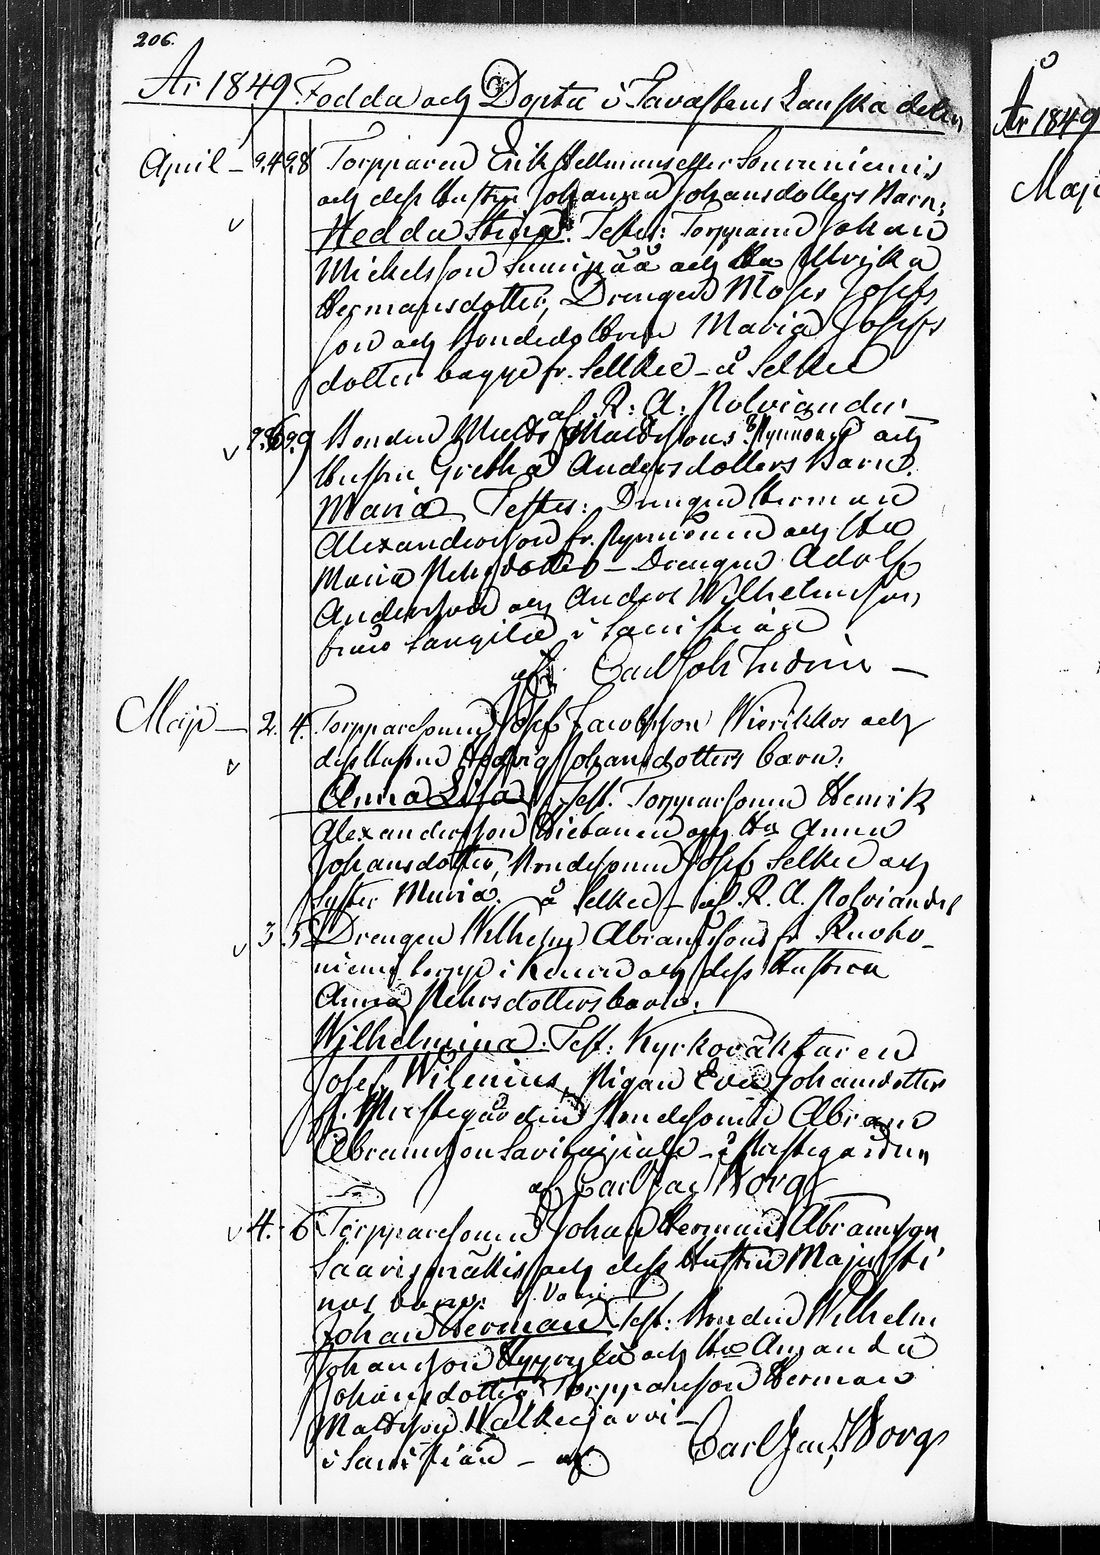 206.
År 1849 Födda och Döpta i Tavastens Länska delen
April – 24. 28 Torpparen Erik Hellmans eller Souruniemis
och dess Hustru Johanna Johansdotters Barn:
Hedda Stina. Testes: Torpparen Johan
Mickelsson Sunipää och Ha Ulrika
Hermansdotter, Drengen Moses Josefs
son och Bondedottren Maria Josefs
dotter fr. Sellkee – å Selkee
af R: A: Polviander
26. 29 Bonden Matts Mattssons och
Hustru Gretha Andersdotters Barn.
Maria Testes: Drengen Herman
Alexandersson fr. och Ha
Maria Petersdotter – Drengen Adolf
Andersson och Anders Wilhelmsson
från i Sacristian
af Carl Joh
Maji – 2. 4. Torpparesonen Josef Jacobsson Wierikkos och
dess hustru Hedvig Johansdotters barn:
Anna Lisa Test. Torpparsonen Henrik
Alexandersson Hietanen och Ha Anna
Johansdotter, Bondesonen Josef Selkee och
Syster Maria. å Selkee – af R. A. Polviander
3. 5 Drengen Wilhelm Abramssons fr Ruoko
niemi och dess Hustru
Anna Pehrsdotters barn.
Wilhelmina. Test: Kyrkoväktaren
Josef Wilenius, Pigan Eva Johansdotter
fr. Prestegården Bondesonen Abram
Abramsson – i Prestegården
af Carl Jac Borg
4. 6 Torpparesonen Johan Herman Abramsson
Saarismäkis och dess Hustru Maja Sti
nas barn:
Johan Herman Test: Bonden Wilhelm
Johansson och Ha Amanda
Johansdotter, Torpparson Herman
Mattsson Walkeejärvi –
i Sacristian – af Carl Jac, Borg